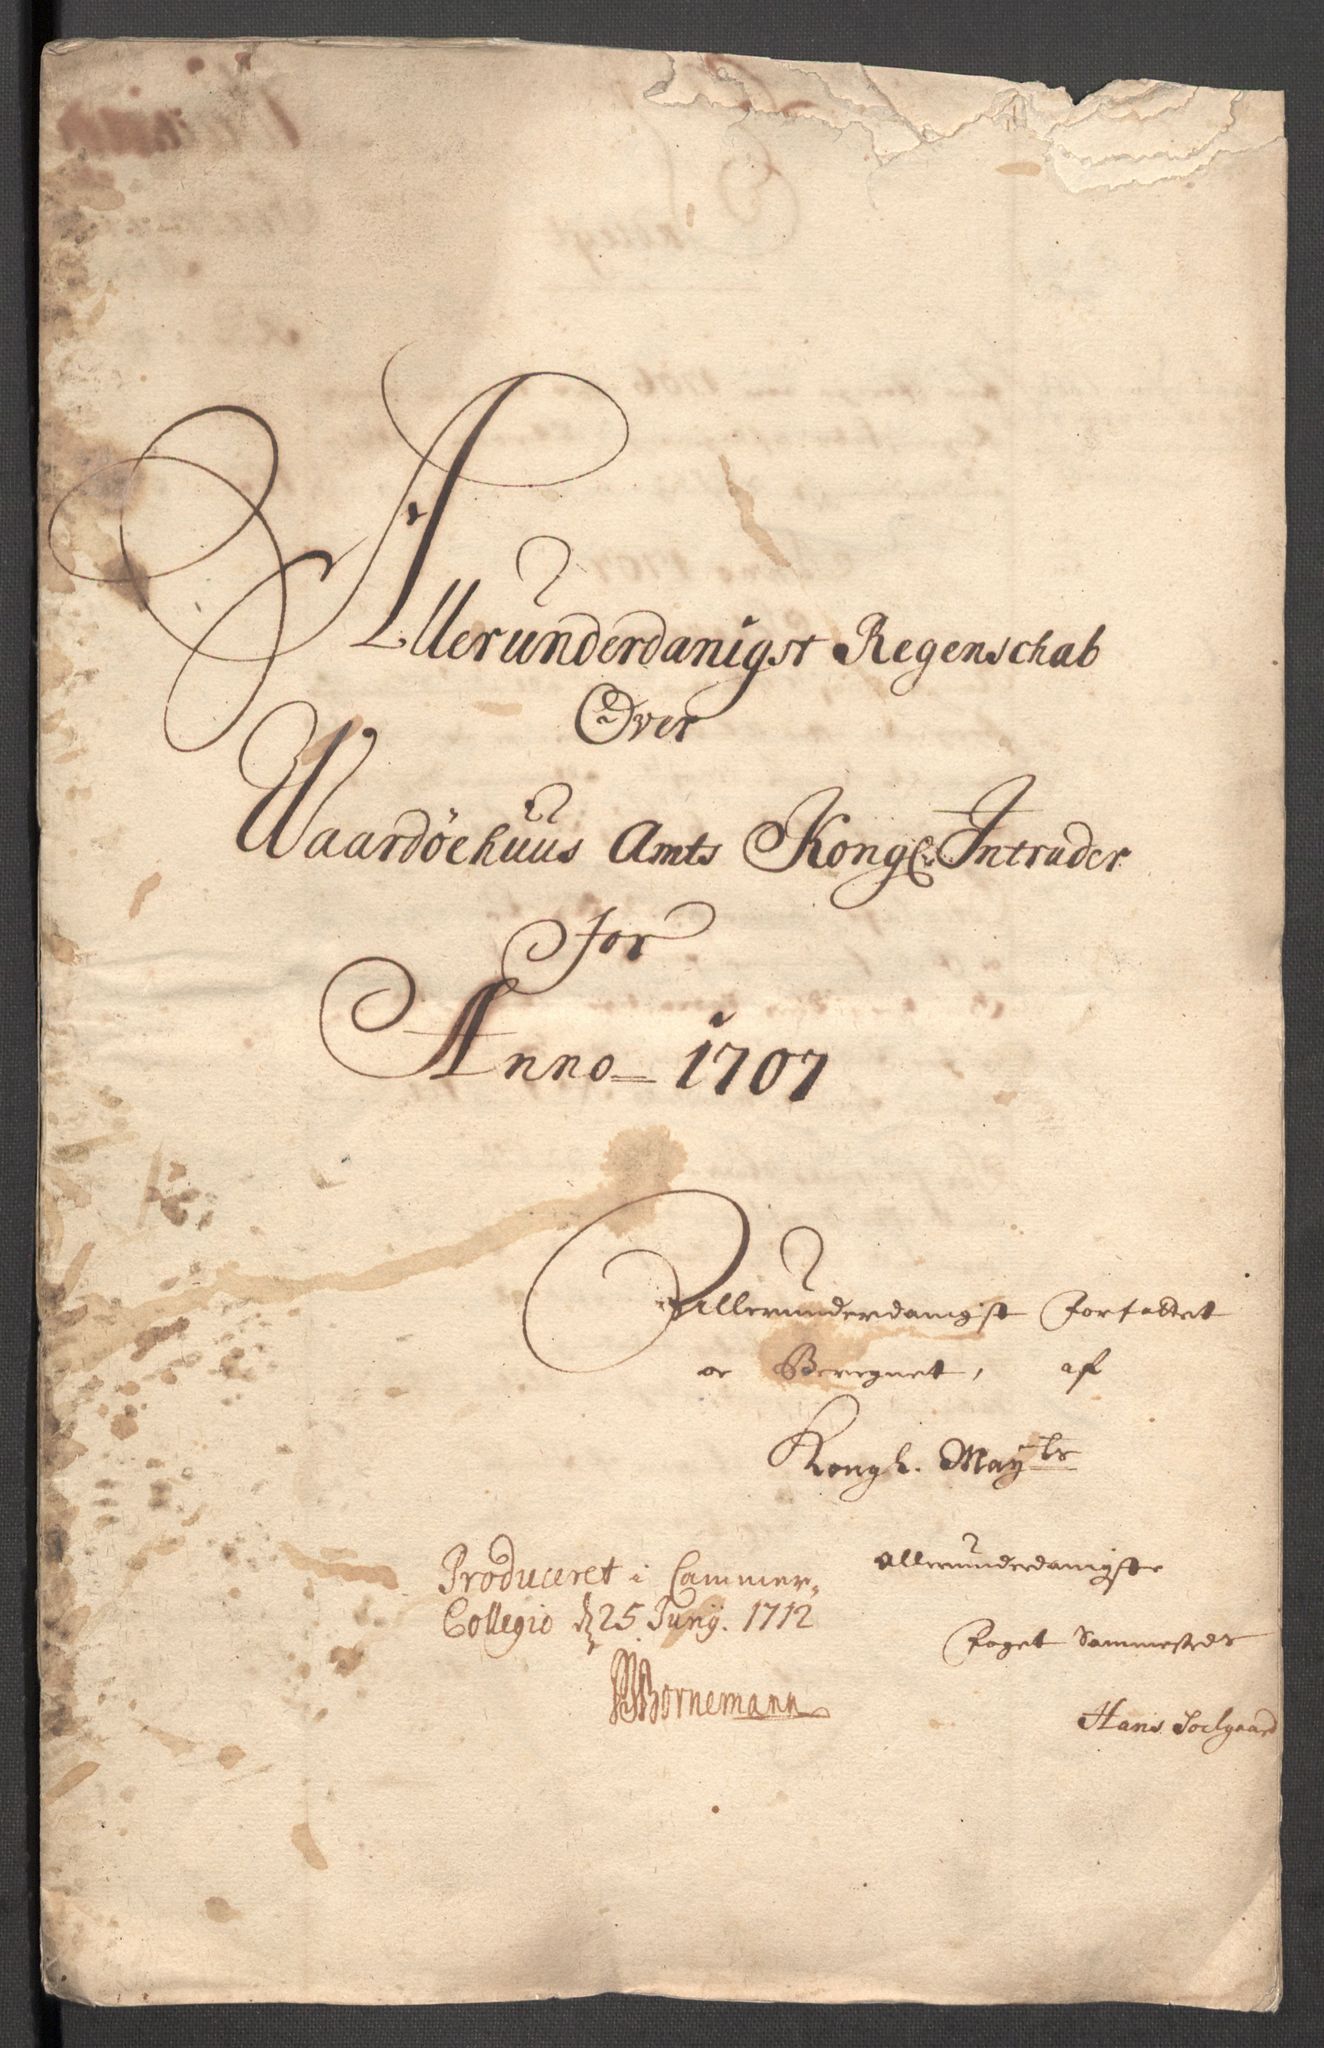 Allerunderdanigst Regenschab
Over
Waardøehuus Amts Kongl. Intrader
For
Anno 1707
Allerunderdanigst Forfattet
oc Beregnet, af
Kongl. Mayts
Allerunderdanigste
Foget Sammesteds
Hans Soelgaard
Produceret i Cammer-
Collegio d. 25 Junij. 1712
Bornemann